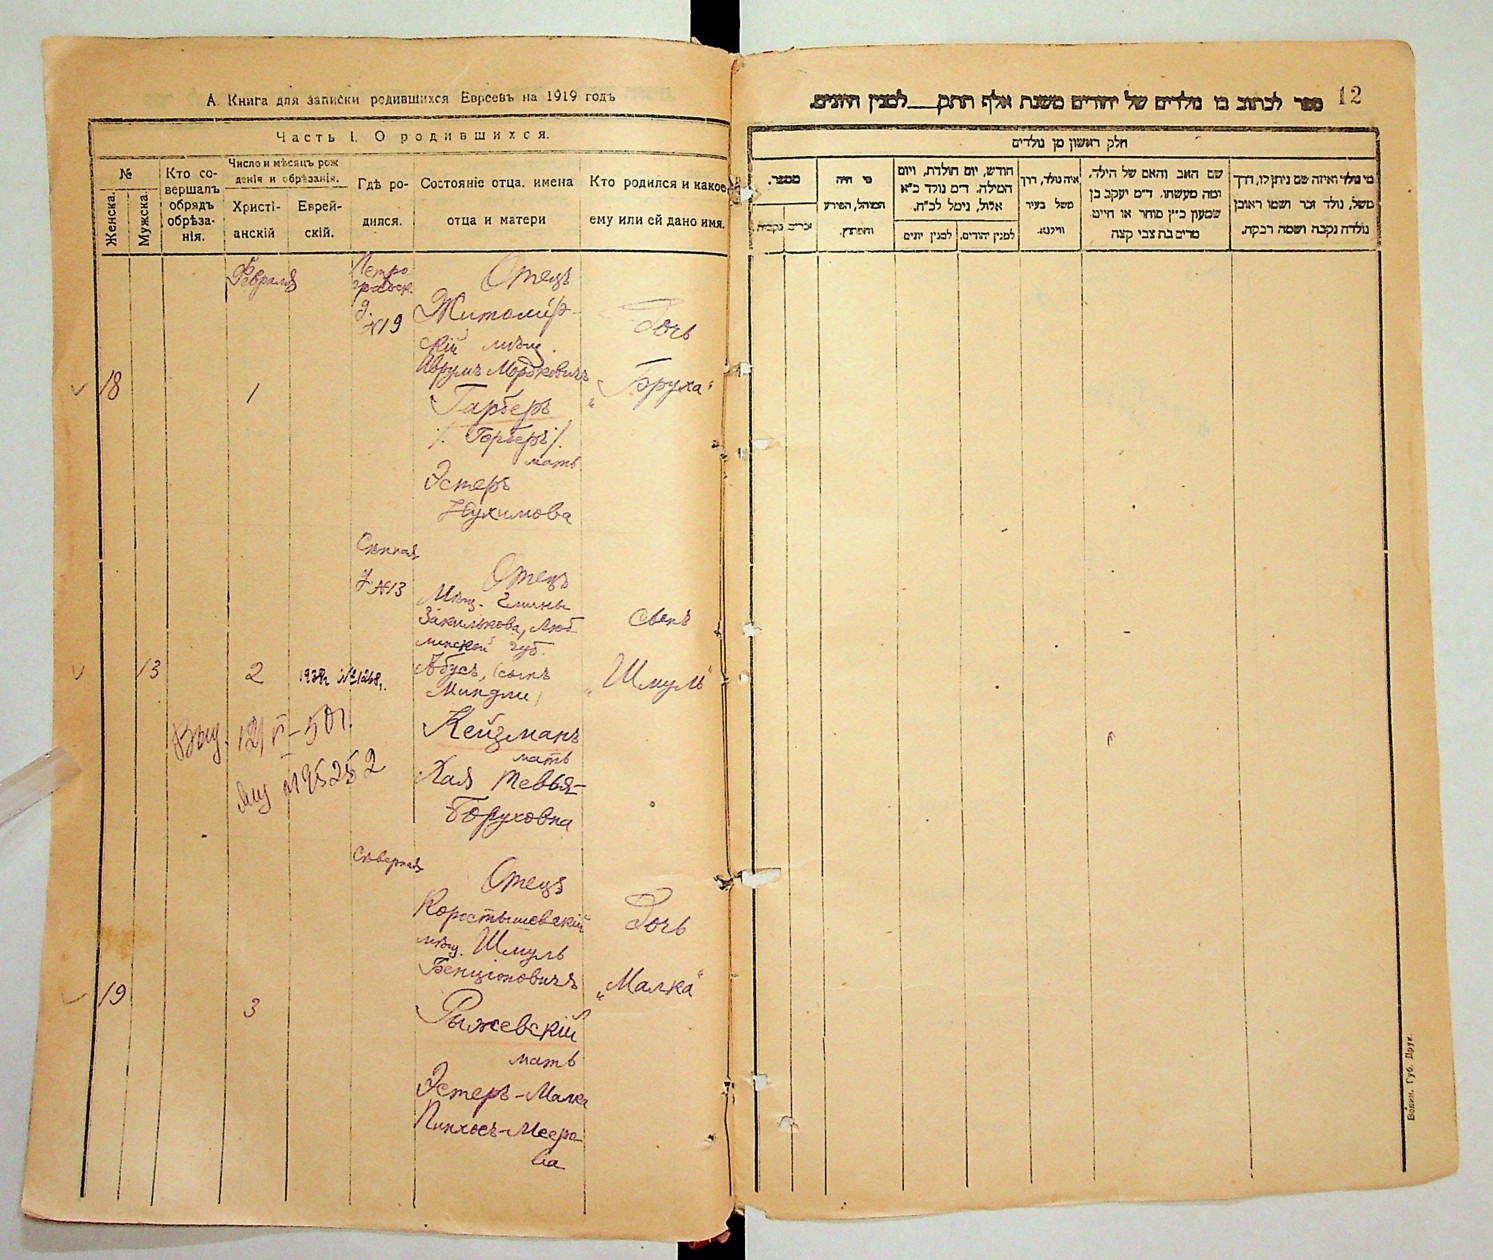 А. Книга для записки родившихся Евреевъ на 1919 годъ
Часть I. О родившихся.
№
Женска.
Мужска.
Кто со-
вершалъ
обрядъ
обрѣза-
нія.
Число и мѣсяцъ рож
денія и обрѣзанія.
Христі-
анскій
Еврей-
скій.
Гдѣ ро-
дился.
Состояніе отца, имена
отца и матери
Кто родился и какое
ему или ей дано имя.
Февраля
Петро-
градск.
д.
№19
18
1
Отецъ
Житомір-
скій мѣщ.
Аврумъ Мордковичъ
Гарберъ
/Горберъ/.
мать
Эстеръ
Нухимова
Дочь
„Бруха“
Сѣнная
д №13
13
2
1938г №1268.
Выд. 12/VI-50г.
№ 252
Отецъ
Мѣщ. Гмины
Закликова, Люб-
линской губ.
Абусь, (сынъ
Миндли)
Кейзманъ
мать
Хая Тевья-
Боруховна
Сынъ
„Шмуль“
Сѣверная
19
3
Отецъ
Коростышевскій
мѣщ. Шмуль
Бенціоновичъ
Рыжевскій
мать
Эстеръ-Малка
Пинхосъ-Мееро-
ва
Дочь
„Малка“
12
ספר לכתוב בו נולדים של יהודים משנת אלף תתק___למנין היונים.
חלק ראשון מן נולדים
מי נולד ואיזה שם ניתן לו, דרך
משל, נולד זכר ושמו ראובן
נולדה נקבה ושמה רבקה.
שם האב והאם של הילד,
ומה מעשהו. ד״מ יעקב בן
שמעון כ״ץ סוחר או חייט
מרים בת צבי קצה
איה נולד, דרך
משל בעיר
ווילנא.
חודש, יום הולדת, ויום
המילה. ד״מ נולד כ״א
אלול, נימל לכ״ח.
למנין יהודים.
למנין יונים
מי היה
המוהל, הפורע
והמוצץ.
מספר.
זכרים
נקבות
Волын. Губ. Друк.